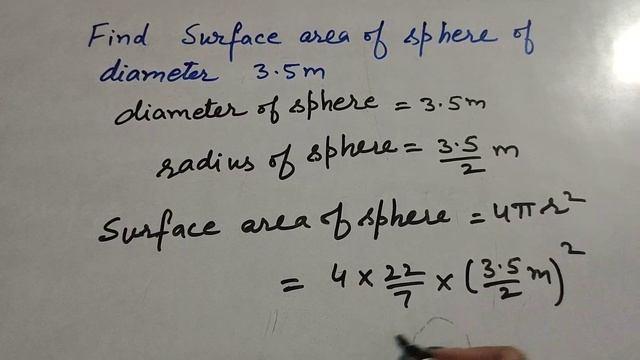 Find Surface area of sphere of
diameter 3.5m
diameter of sphere = 3.5m
radius of sphere = 3.5/2 m
Surface area of sphere = 4πr²
= 4 × 22/7 × (3.5/2 m)²